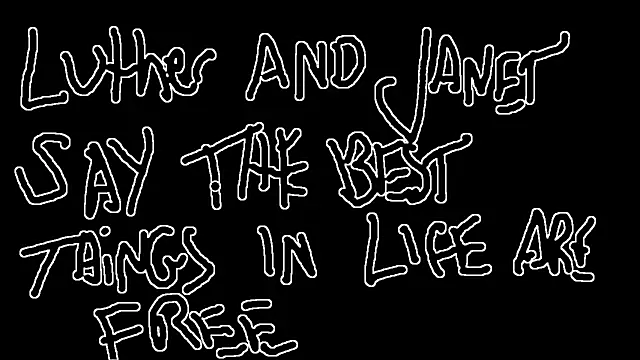 Luther AND JANET
SAY THE BEST
THINGS IN LIFE ARE
FREE